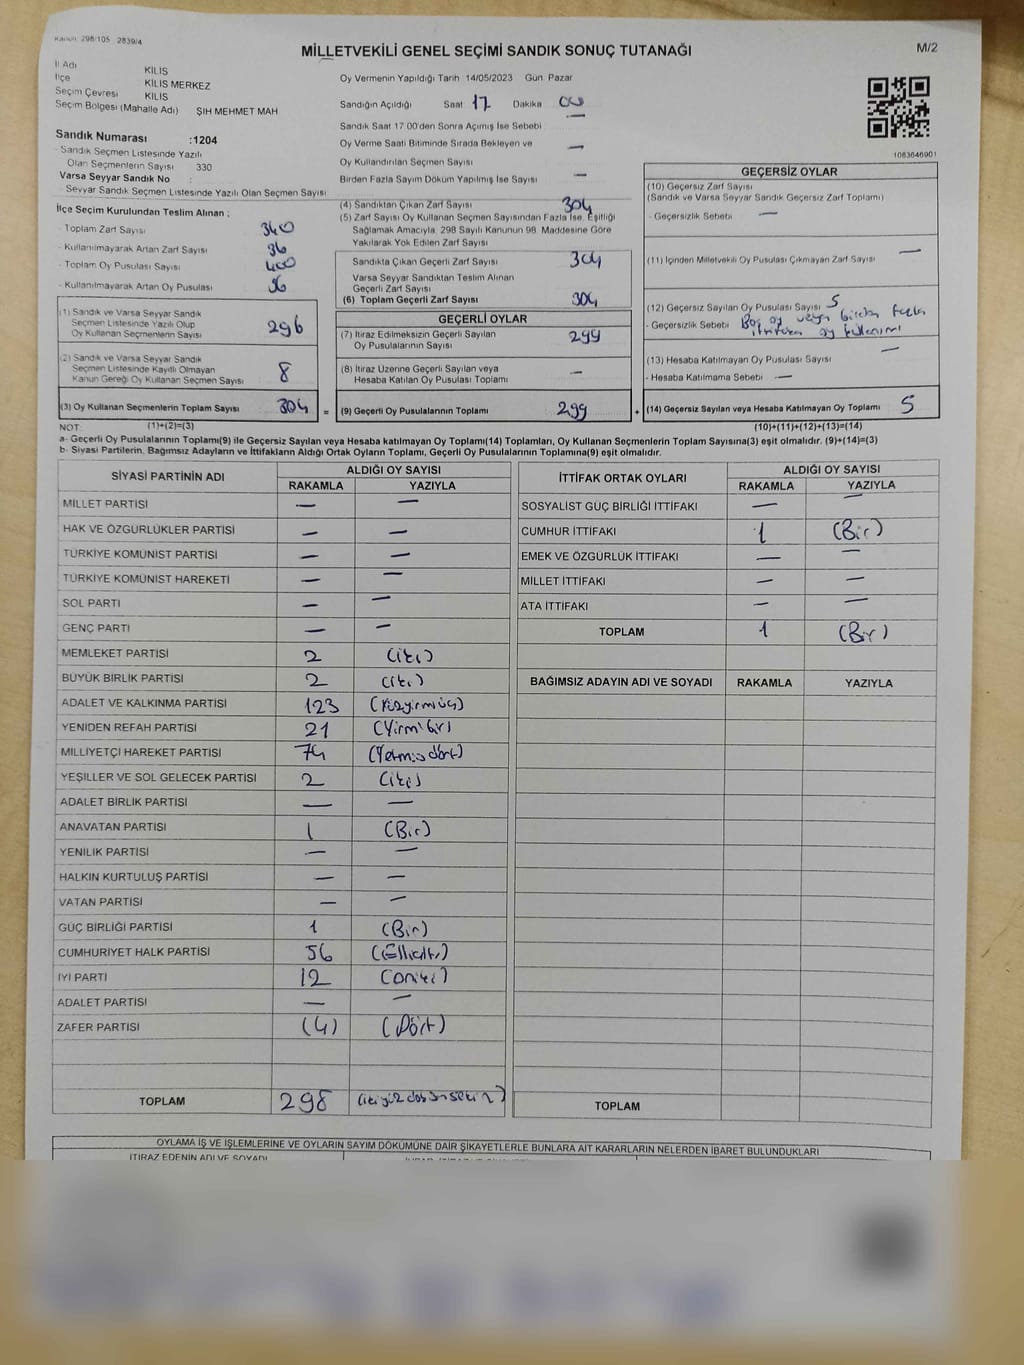 Kanun: 298/105 2839/4
MİLLETVEKİLİ GENEL SEÇİMİ SANDIK SONUÇ TUTANAĞI
M/2
İl Adı KİLİS
İlçe KİLİS MERKEZ
Seçim Çevresi KİLİS
Seçim Bölgesi (Mahalle Adı) ŞIH MEHMET MAH
Sandık Numarası :1204
- Sandık Seçmen Listesinde Yazılı
Olan Seçmenlerin Sayısı 330
Varsa Seyyar Sandık No :
- Seyyar Sandık Seçmen Listesinde Yazılı Olan Seçmen Sayısı
Oy Vermenin Yapıldığı Tarih 14/05/2023 Gün Pazar
Sandığın Açıldığı Saat 17 Dakika 00
Sandık Saat 17 00'den Sonra Açımış İse Sebebi —
Oy Verme Saati Bitiminde Sırada Bekleyen ve
Oy Kullandırılan Seçmen Sayısı —
Birden Fazla Sayım Döküm Yapılmış İse Sayısı —
1083646901
İlçe Seçim Kurulundan Teslim Alınan ;
- Toplam Zarf Sayısı 340
- Kullanılmayarak Artan Zarf Sayısı 36
- Toplam Oy Pusulası Sayısı 400
- Kullanılmayarak Artan Oy Pusulası 96
(1) Sandık ve Varsa Seyyar Sandık
Seçmen Listesinde Yazılı Olup
Oy Kullanan Seçmenlerin Sayısı 296
(2) Sandık ve Varsa Seyyar Sandık
Seçmen Listesinde Kayıtlı Olmayan
Kanun Gereği Oy Kullanan Seçmen Sayısı 8
(3) Oy Kullanan Seçmenlerin Toplam Sayısı 304 =
(1)+(2)=(3)
(4) Sandıktan Çıkan Zarf Sayısı 304
(5) Zarf Sayısı Oy Kullanan Seçmen Sayısından Fazla İse, Eşitliği
Sağlamak Amacıyla, 298 Sayılı Kanunun 98. Maddesine Göre
Yakılarak Yok Edilen Zarf Sayısı
Sandıkta Çıkan Geçerli Zarf Sayısı 304
Varsa Seyyar Sandıktan Teslim Alınan
Geçerli Zarf Sayısı
(6) Toplam Geçerli Zarf Sayısı 304
GEÇERLİ OYLAR
(7) İtiraz Edilmeksizin Geçerli Sayılan
Oy Pusulalarının Sayısı 299
(8) İtiraz Üzerine Geçerli Sayılan veya
Hesaba Katılan Oy Pusulası Toplamı —
(9) Geçerli Oy Pusulalarının Toplamı 299 +
GEÇERSİZ OYLAR
(10) Geçersiz Zarf Sayısı
(Sandık ve Varsa Seyyar Sandık Geçersiz Zarf Toplamı)
- Geçersizlik Sebebi —
(11) İçinden Milletvekili Oy Pusulası Çıkmayan Zarf Sayısı —
(12) Geçersiz Sayılan Oy Pusulası Sayısı 5
- Geçersizlik Sebebi Boş oy veya birden fazla
ittifaka oy kullanımı
(13) Hesaba Katılmayan Oy Pusulası Sayısı —
- Hesaba Katılmama Sebebi —
(14) Geçersiz Sayılan veya Hesaba Katılmayan Oy Toplamı 5
(10)+(11)+(12)+(13)=(14)
NOT:
a- Geçerli Oy Pusulalarının Toplamı(9) ile Geçersiz Sayılan veya Hesaba katılmayan Oy Toplamı(14) Toplamları, Oy Kullanan Seçmenlerin Toplam Sayısına(3) eşit olmalıdır. (9)+(14)=(3)
b- Siyasi Partilerin, Bağımsız Adayların ve İttifakların Aldığı Ortak Oyların Toplamı, Geçerli Oy Pusulalarının Toplamına(9) eşit olmalıdır.
SİYASİ PARTİNİN ADI ALDIĞI OY SAYISI
RAKAMLA YAZIYLA
MİLLET PARTİSİ — —
HAK VE ÖZGÜRLÜKLER PARTİSİ — —
TÜRKİYE KOMÜNİST PARTİSİ — —
TÜRKİYE KOMÜNİST HAREKETİ — —
SOL PARTİ — —
GENÇ PARTİ — —
MEMLEKET PARTİSİ 2 (iki)
BÜYÜK BİRLİK PARTİSİ 2 (iki)
ADALET VE KALKINMA PARTİSİ 123 (Yüzyirmiüç)
YENİDEN REFAH PARTİSİ 21 (Yirmibir)
MİLLİYETÇİ HAREKET PARTİSİ 74 (Yetmişdört)
YEŞİLLER VE SOL GELECEK PARTİSİ 2 (iki)
ADALET BİRLİK PARTİSİ — —
ANAVATAN PARTİSİ 1 (Bir)
YENİLİK PARTİSİ — —
HALKIN KURTULUŞ PARTİSİ — —
VATAN PARTİSİ — —
GÜÇ BİRLİĞİ PARTİSİ 1 (Bir)
CUMHURİYET HALK PARTİSİ 56 (Ellialtı)
İYİ PARTİ 12 (Oniki)
ADALET PARTİSİ — —
ZAFER PARTİSİ (4) (Dört)
TOPLAM 298 (ikiyüzdoksansekiz)
İTTİFAK ORTAK OYLARI ALDIĞI OY SAYISI
RAKAMLA YAZIYLA
SOSYALİST GÜÇ BİRLİĞİ İTTİFAKI — —
CUMHUR İTTİFAKI 1 (Bir)
EMEK VE ÖZGÜRLÜK İTTİFAKI — —
MİLLET İTTİFAKI — —
ATA İTTİFAKI — —
TOPLAM 1 (Bir)
BAĞIMSIZ ADAYIN ADI VE SOYADI RAKAMLA YAZIYLA
TOPLAM
OYLAMA İŞ VE İŞLEMLERİNE VE OYLARIN SAYIM DÖKÜMÜNE DAİR ŞİKAYETLERLE BUNLARA AİT KARARLARIN NELERDEN İBARET BULUNDUKLARI
İTİRAZ EDENİN ADI VE SOYADI